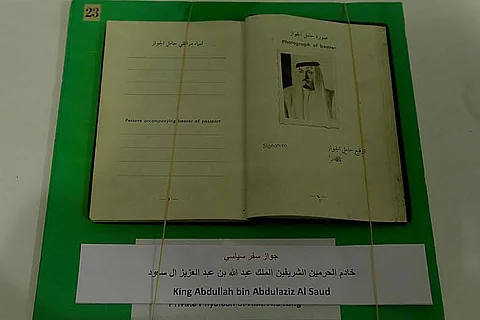 23
أسماء مرافقي حامل الجواز
Persons accompanying bearer of passport
صورة حامل الجواز
Photograph of bearer
Signature
توقيع حامل الجواز
جواز سفر سياسي
خادم الحرمين الشريفين الملك عبد الله بن عبد العزيز ال سعود
King Abdullah bin Abdulaziz Al Saud
Private Physician of